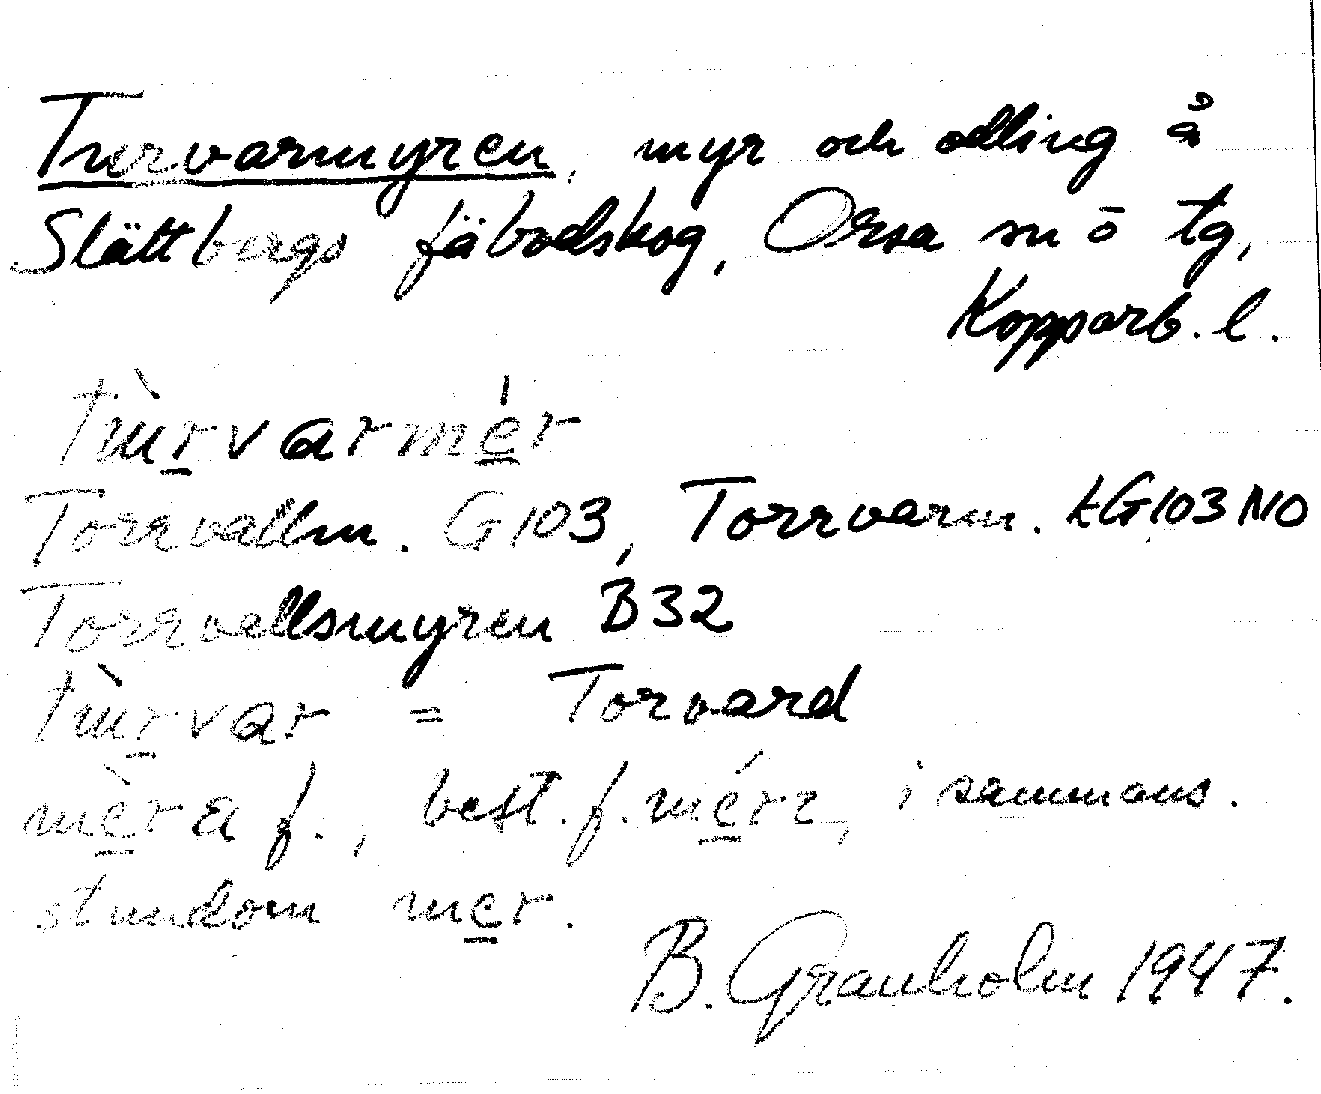 Turvarmyren, myr och odling å
Slättbergs fäbodskog, Orsa sn ö tg,
Kopparb. l.
tùrvarmér
Torrvallm. G103, Torrvarm. kG103NO
Torrvallsmyren B32
tùrvar = Torvard
mèra f., best. f. mérı, i sammans.
stundom mer.
B. Granholm 1947.